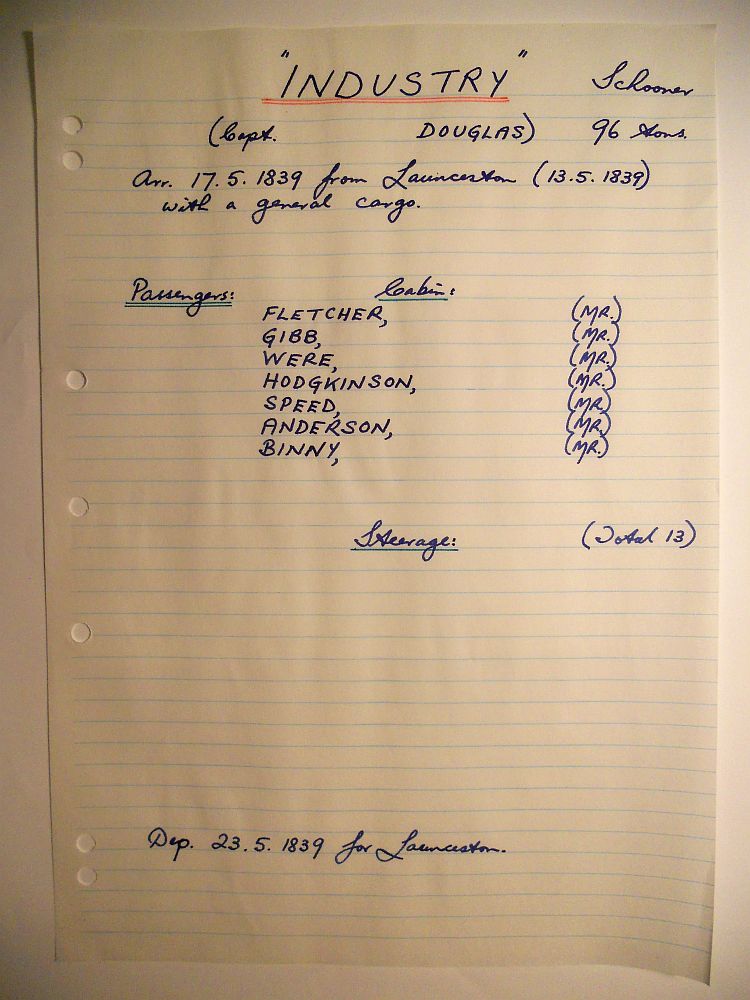 "INDUSTRY" Schooner
(Capt. DOUGLAS) 96 tons.
Arr. 17.5.1839 from Launceston (13.5.1839)
with a general cargo.
Passengers: Cabin:
FLETCHER, (MR.)
GIBB, (MR.)
WERE, (MR.)
HODGKINSON, (MR.)
SPEED, (MR)
ANDERSON, (MR.)
BINNY, (MR.)
Steerage: (Total 13)
Dep. 23.5.1839 for Launceston.